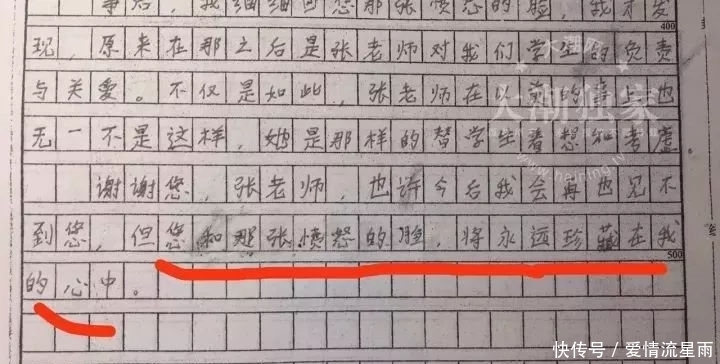 事后，我细细回想那张愤怒的脸，我才发
400
现，原来在那之后是张老师对我们学生的负责
与关爱。不仅是如此，张老师在以前的事上也
无一不是这样，她是那样的替学生着想和考虑
谢谢您，张老师，也许今后我会再也见不
到您，但您和那张愤怒的脸，将永远珍藏在我
500
的心中。
大潮独家
www.haining.tv
快传号／爱情流星雨